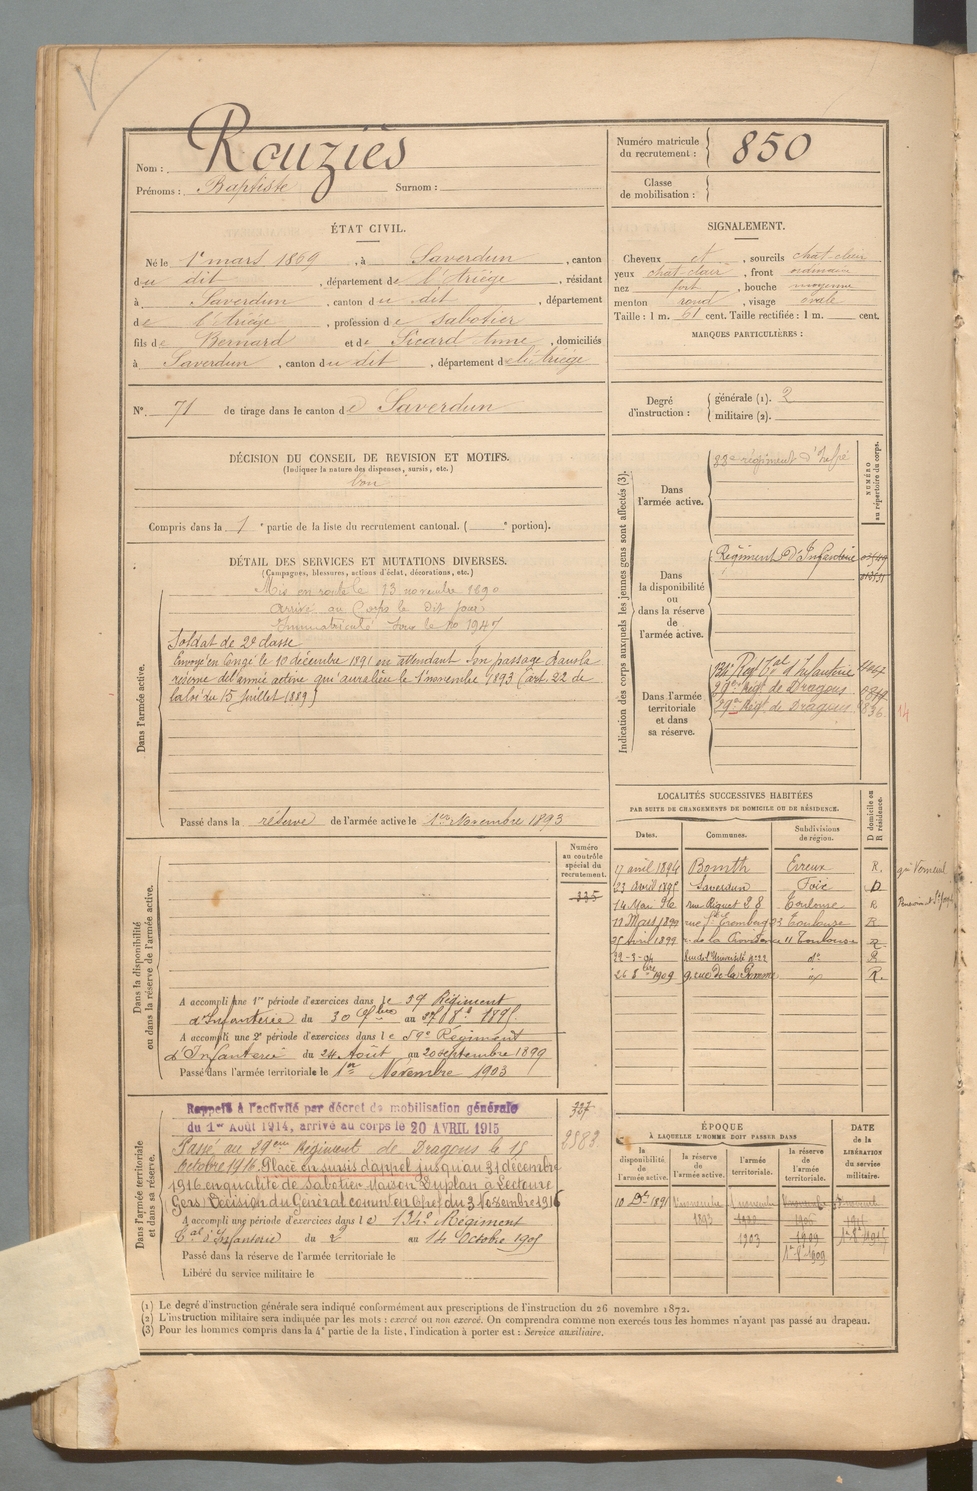 Nom : Rouziès
Prénoms : Baptiste Surnom :
Numéro matricule du recrutement : 850
Classe de mobilisation :
ÉTAT CIVIL.
Né le 1er mars 1869, à Saverdun, canton
du dit, département de l'Ariège, résidant
à Saverdun, canton du dit, département
de l'Ariège, profession de sabotier
fils de Bernard et de Sicard Anne, domiciliés
à Saverdun, canton du dit, département de l'Ariège
N° 71 de tirage dans le canton de Saverdun
SIGNALEMENT.
Cheveux et, sourcils chat-clair
yeux chat-clair, front ordinaire
nez fort, bouche moyenne
menton rond, visage ovale
Taille : 1 m. 61 cent. Taille rectifiée : 1 m. cent.
MARQUES PARTICULIÈRES :
Degré d'instruction : générale (1). 2
militaire (2).
DÉCISION DU CONSEIL DE REVISION ET MOTIFS.
(Indiquer la nature des dispenses, sursis, etc.)
bon
Compris dans la 1e partie de la liste du recrutement cantonal. ( e portion).
DÉTAIL DES SERVICES ET MUTATIONS DIVERSES.
(Campagnes, blessures, actions d'éclat, décorations, etc.)
Dans l'armée active.
Mis en route le 13 novembre 1890
arrivé au Corps le dit jour
Immatriculé sous le no 1947
Soldat de 2e classe
Envoyé en Congé le 10 décembre 1891 en attendant son passage dans la
réserve de l'armée active qui aura lieu le 1 novembre 1893 (art. 22 de
la loi du 15 Juillet 1889)
Passé dans la réserve de l'armée active le 1er Novembre 1893
Indication des corps auxquels les jeunes gens sont affectés (3).
NUMÉRO au répertoire du corps.
Dans l'armée active.
88e régiment d'Infie
Dans la disponibilité ou dans la réserve de l'armée active.
Régiment d'Infanterie
Dans l'armée territoriale et dans sa réserve.
134e Regt Tal d'Infanterie
29e Régt de Dragons
29e Régt de Dragons 836
14
LOCALITÉS SUCCESSIVES HABITÉES
PAR SUITE DE CHANGEMENTS DE DOMICILE OU DE RÉSIDENCE.
Dates. Communes. Subdivisions de région. D domicile ou R résidence.
17 avril 1894 Evreux R.
23 avril 1895 Saverdun Foix D
14 Mai 96 rue Riquet 28 Toulouse R
Mars 1899 rue Toulouse R
25 Avril 1899 r. de la 11 Toulouse R
22-3-04 Rue de l'Université do R
26 8bre 1909 9 rue de la Pomme R.
Dans la disponibilité ou dans la réserve de l'armée active.
Numéro au contrôle spécial du recrutement.
A accompli une 1re période d'exercices dans le 59 Régiment
d'Infanterie du 30 au 1895
A accompli une 2e période d'exercices dans le 59e Régiment
d'Infanterie du 24 Août au 20 septembre 1899
Passé dans l'armée territoriale le 1er Novembre 1903
Dans l'armée territoriale et dans sa réserve.
Rappelé à l'activité par décret de mobilisation générale
du 1er Août 1914, arrivé au corps le 20 AVRIL 1915
Passé au 29eme Régiment de Dragons le 15
octobre 1916. Placé en sursis d'appel jusqu'au 31 décembre
1916 en qualité de Sabotier Maison Duplan à Lectoure
Gers) Décision du Général commt en chef du 3 Novembre 1916
A accompli une période d'exercices dans le 134e Régiment
Tal d'Infanterie du 2 au 14 Octobre 1905
Passé dans la réserve de l'armée territoriale le
Libéré du service militaire le
327
2583
ÉPOQUE
À LAQUELLE L'HOMME DOIT PASSER DANS
la disponibilité de l'armée active. la réserve de l'armée active. l'armée territoriale. la réserve de l'armée territoriale.
DATE de la LIBÉRATION du service militaire.
10 Dre 1891 1 novembre 1893 1 novembre
1903 1909
(1) Le degré d'instruction générale sera indiqué conformément aux prescriptions de l'instruction du 26 novembre 1872.
(2) L'instruction militaire sera indiquée par les mots : exercé ou non exercé. On comprendra comme non exercés tous les hommes n'ayant pas passé au drapeau.
(3) Pour les hommes compris dans la 4e partie de la liste, l'indication à porter est : Service auxiliaire.